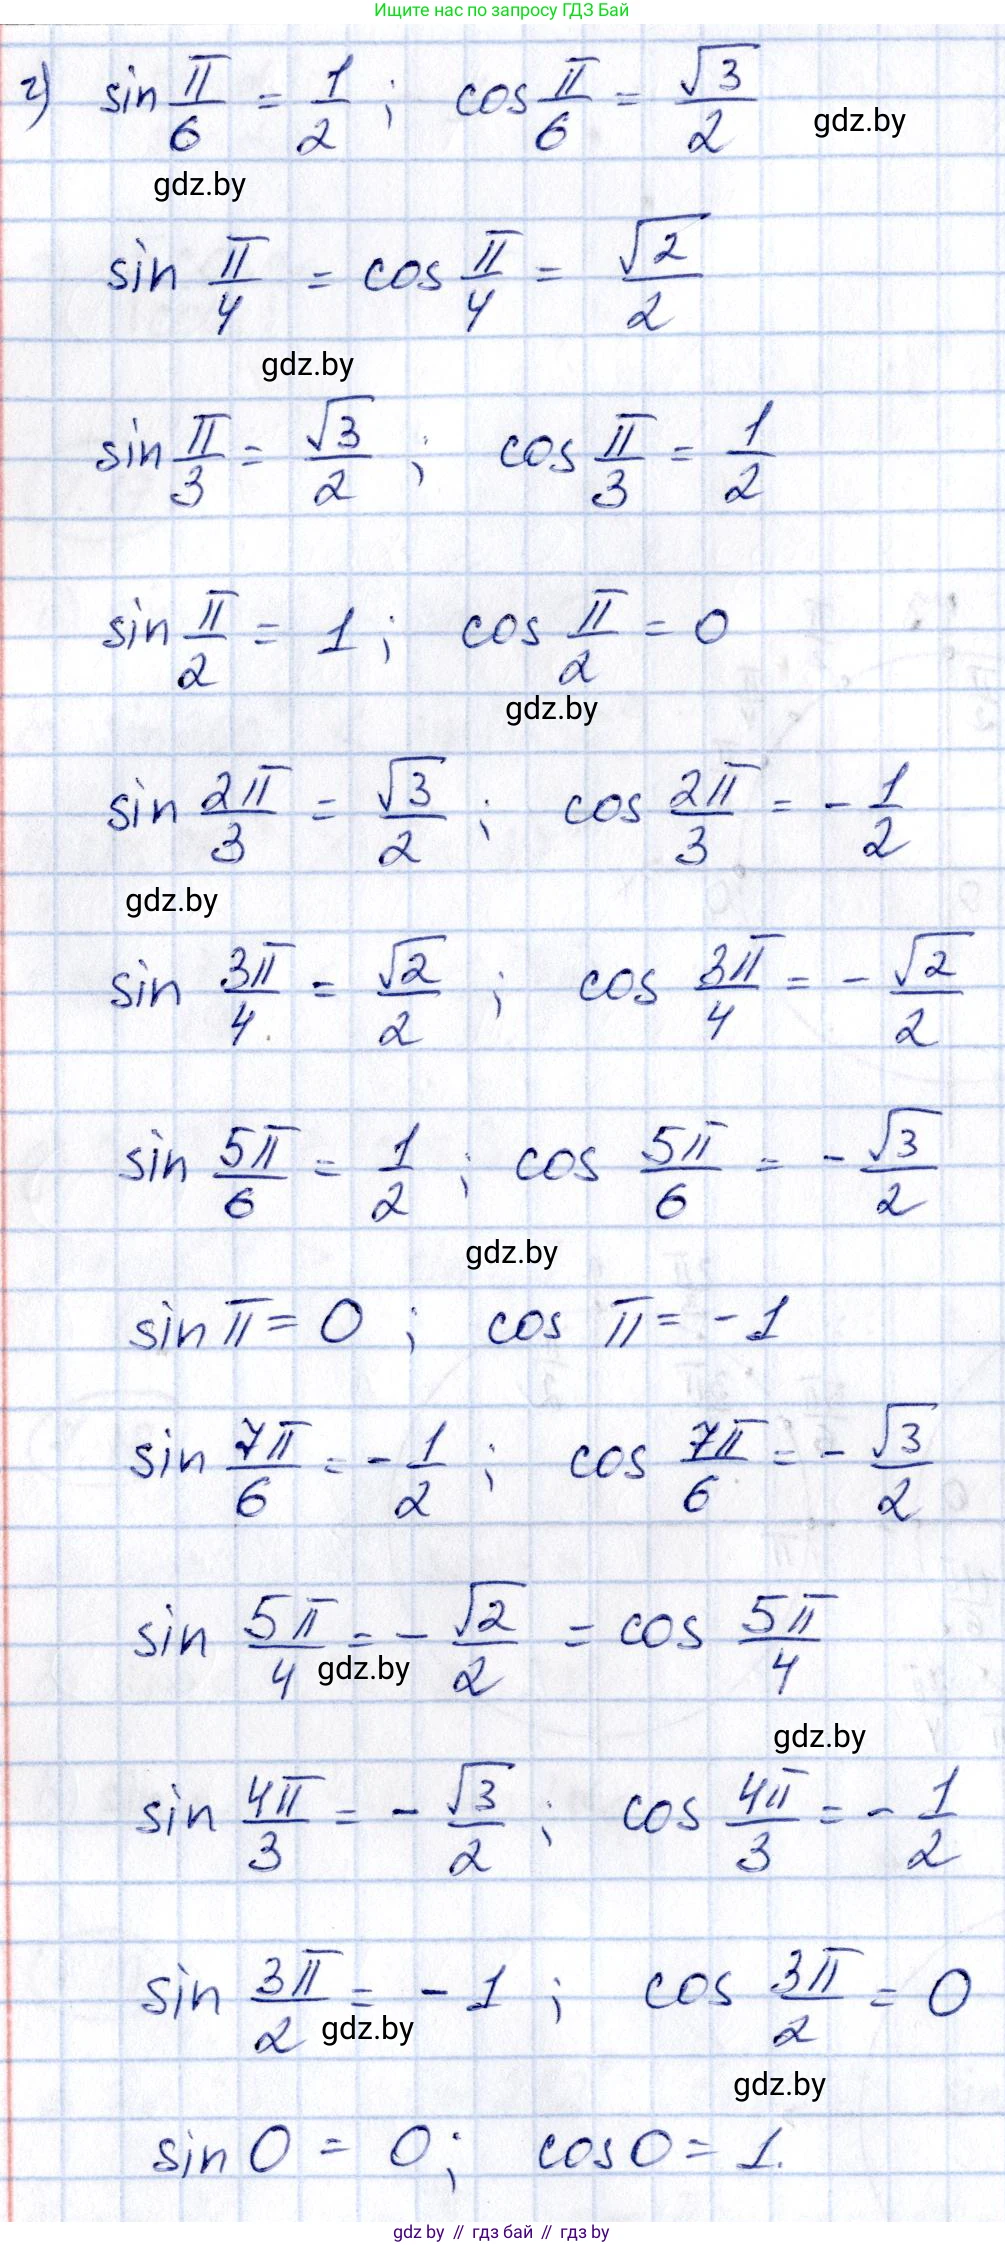 Ищите нас по запросу ГДЗ Бай
г) sin π/6 = 1/2 ; cos π/6 = √3/2
gdz.by
gdz.by
sin π/4 = cos π/4 = √2/2
gdz.by
sin π/3 = √3/2 ; cos π/3 = 1/2
sin π/2 = 1 ; cos π/2 = 0
gdz.by
sin 2π/3 = √3/2 ; cos 2π/3 = - 1/2
gdz.by
sin 3π/4 = √2/2 ; cos 3π/4 = - √2/2
sin 5π/6 = 1/2 ; cos 5π/6 = - √3/2
gdz.by
sin π = 0 ; cos π = -1
sin 7π/6 = - 1/2 ; cos 7π/6 = - √3/2
sin 5π/4 = - √2/2 = cos 5π/4
gdz.by
gdz.by
sin 4π/3 = - √3/2 ; cos 4π/3 = - 1/2
sin 3π/2 = - 1 ; cos 3π/2 = 0
gdz.by
gdz.by
sin 0 = 0 ; cos 0 = 1.
gdz by // гдз бай // гдз by